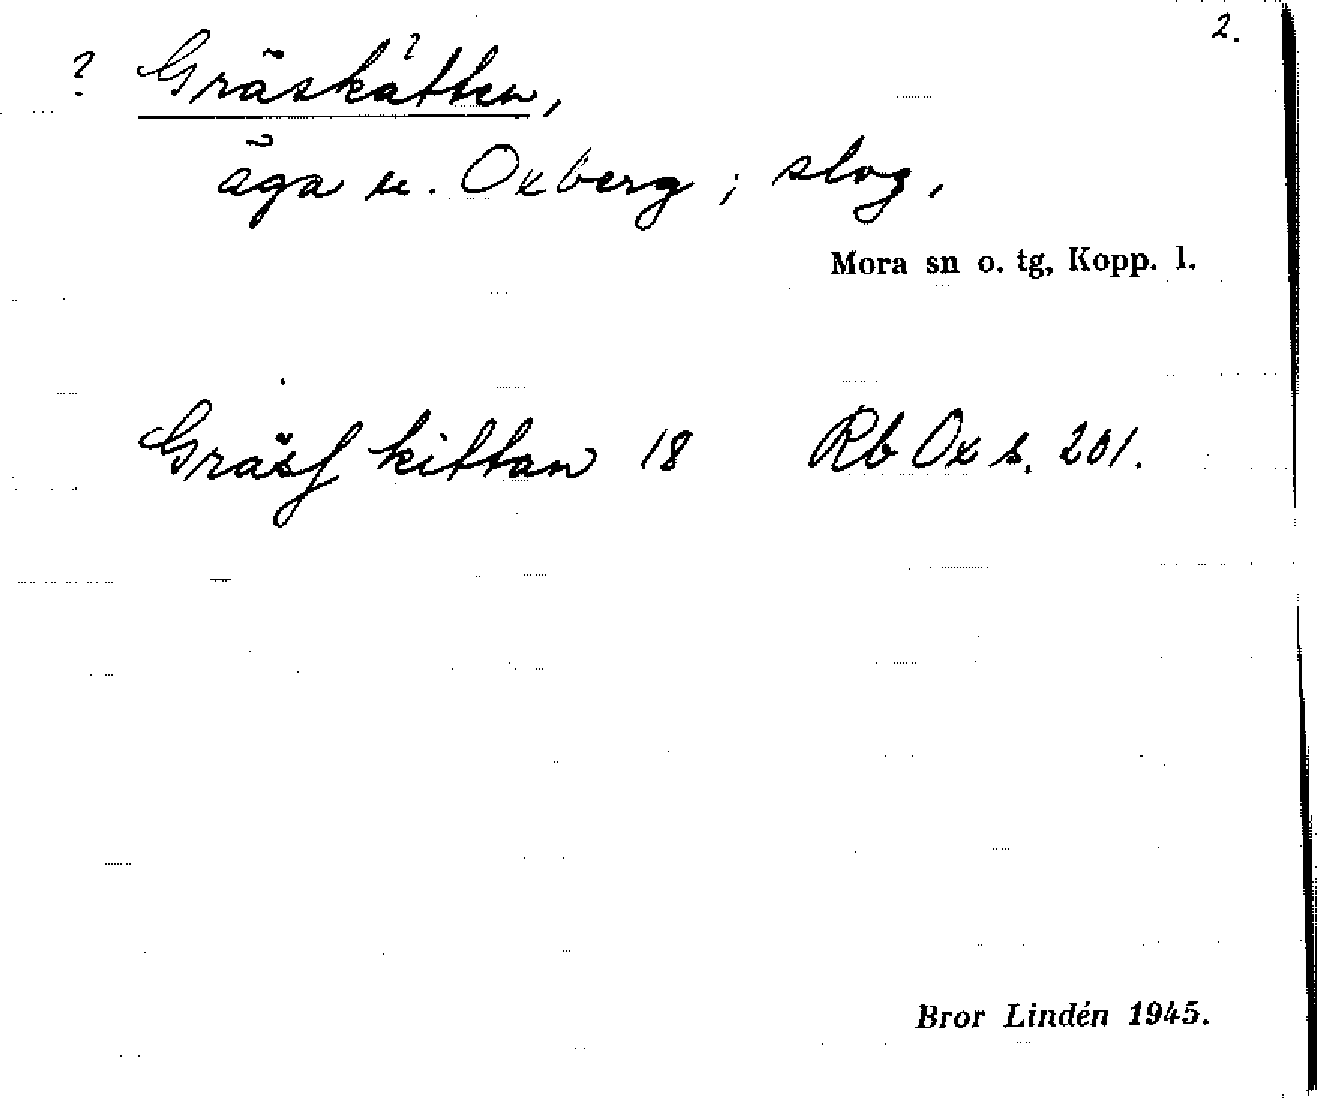 2.
? Gräskätten,
äga u. Oxberg; slog.
Mora sn o. tg, Kopp. l.
Gräsf kittan 18 Rb Ox s. 201.
Bror Lindén 1945.